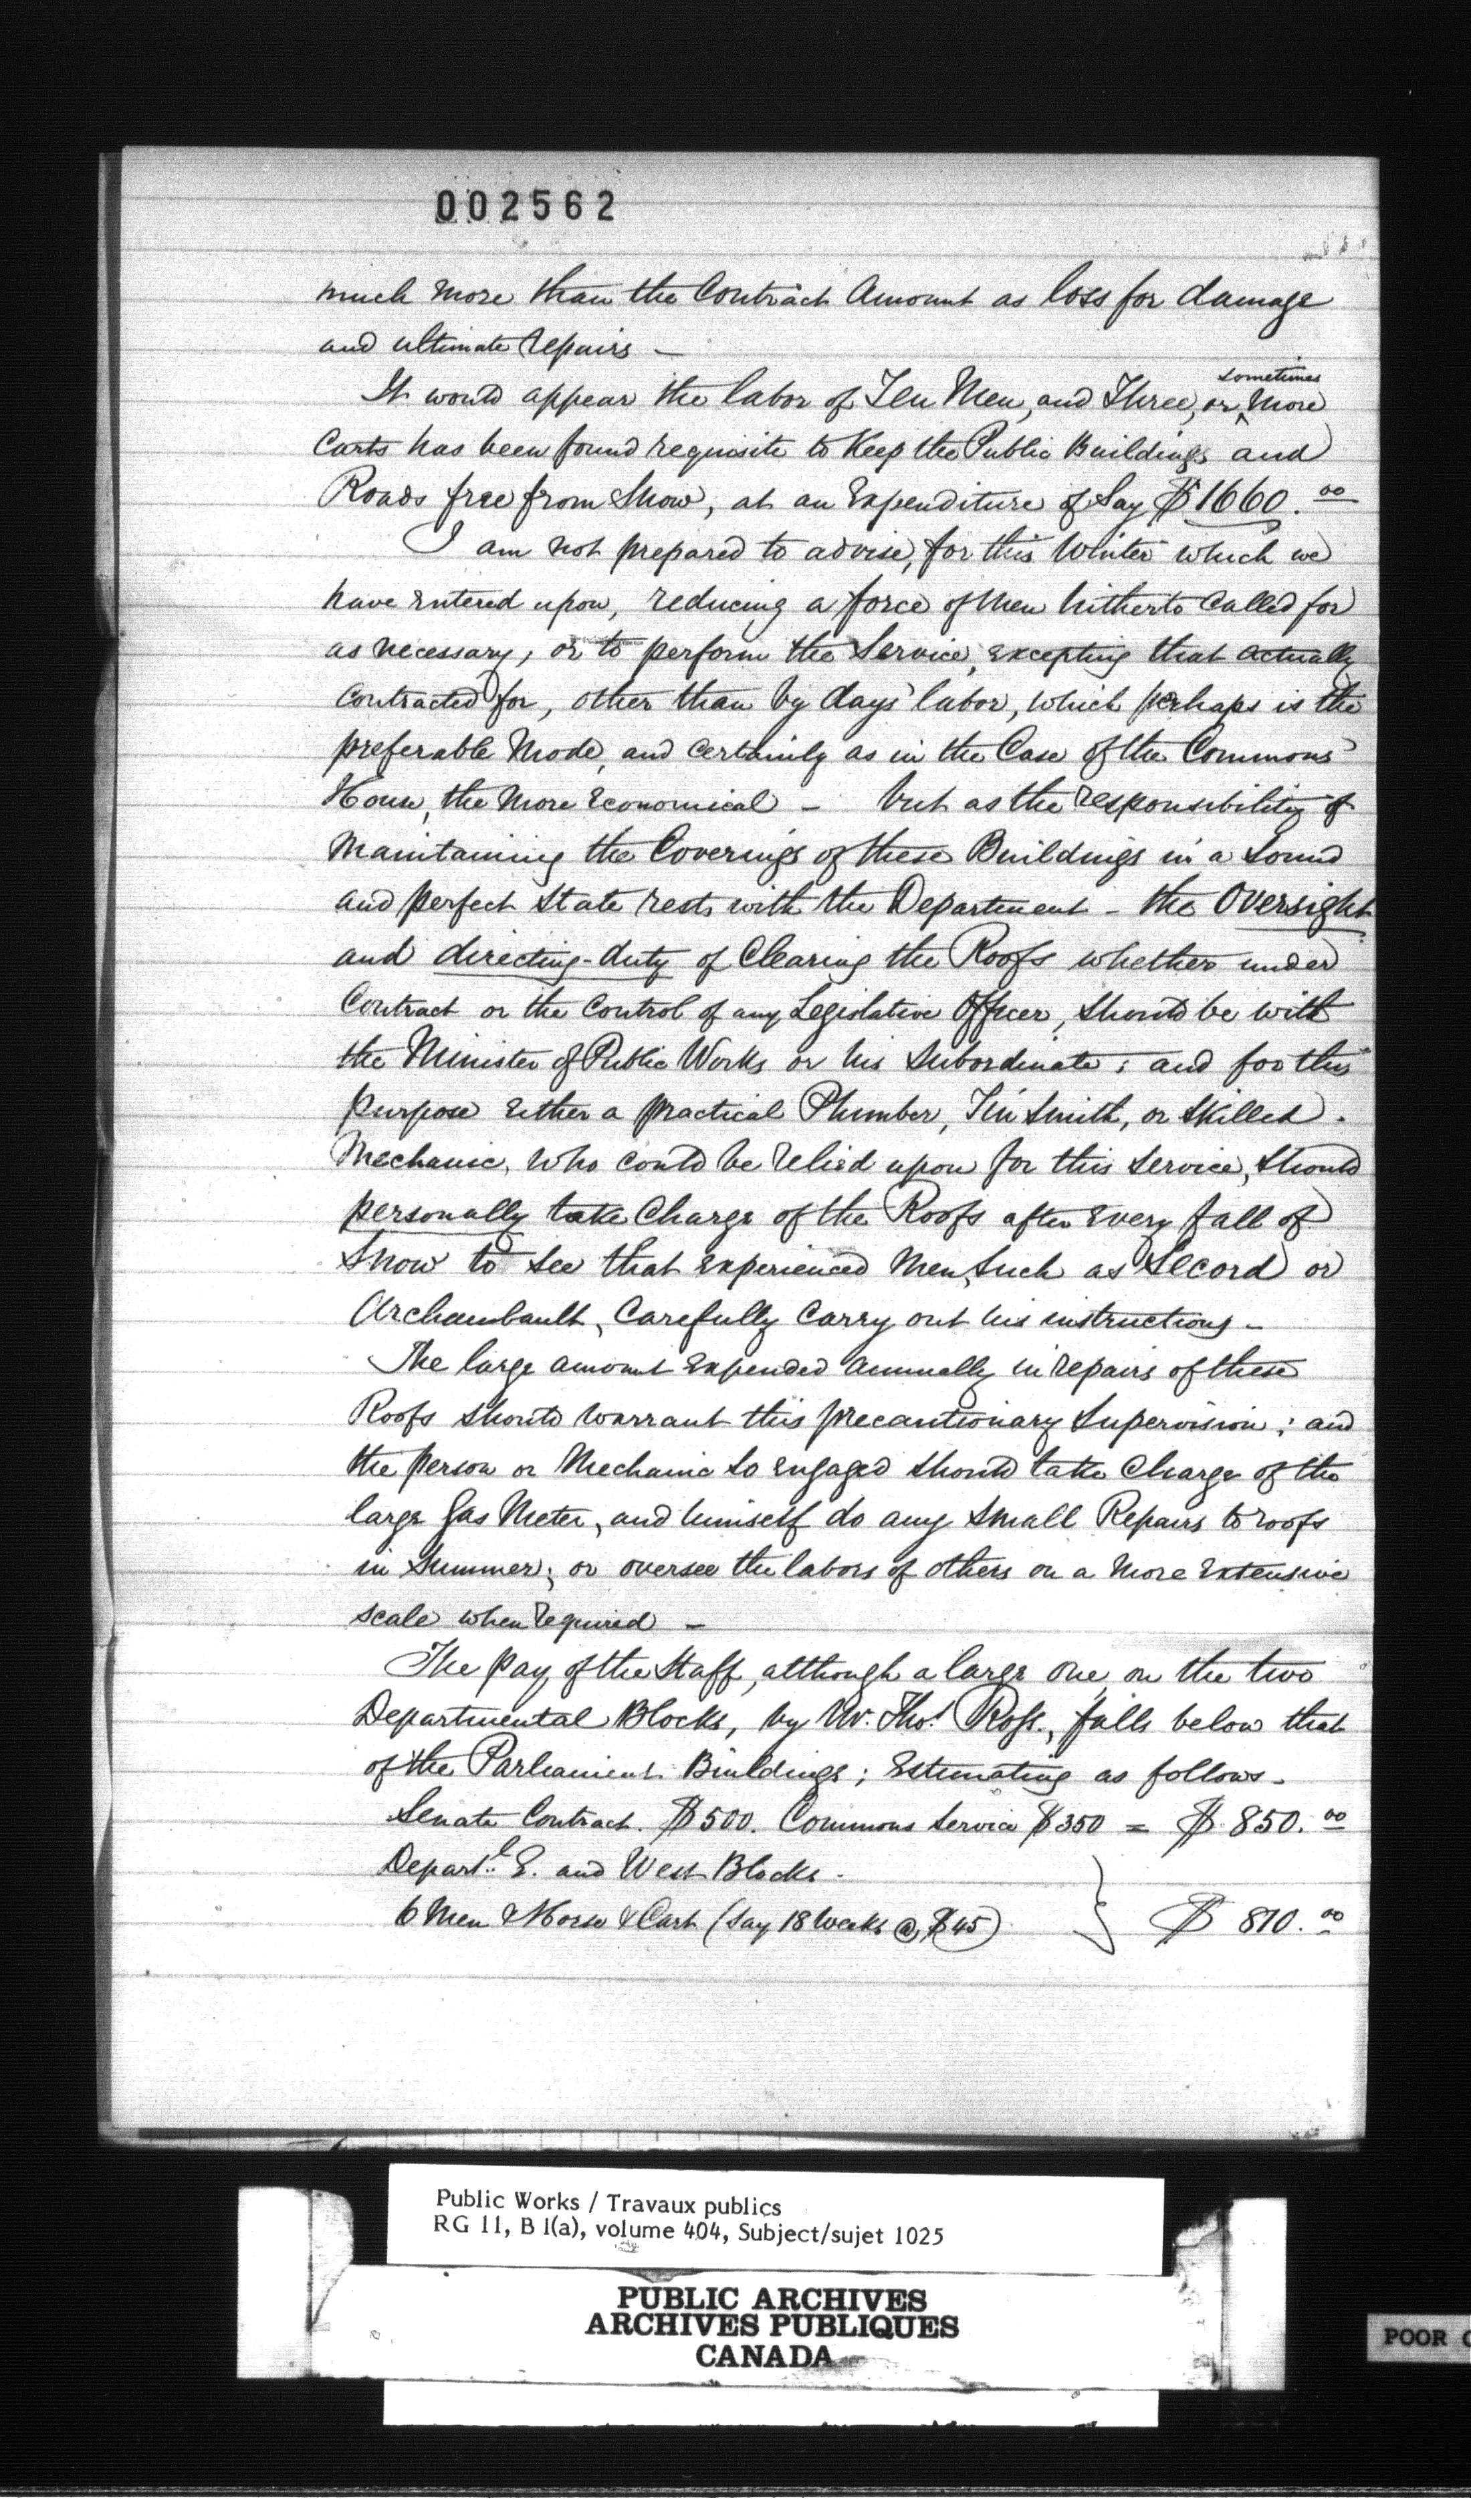 002562
much more than the Contract Amount as loss for damage
and ultimate repairs —
It would appear the labor of Ten Men, and Three, or ^sometimes more
Carts has been found requisite to Keep the Public Buildings and
Roads free from Snow, at an Expenditure of Say $1660.00
I am not prepared to advise, for this Winter which we
have entered upon, reducing a force of Men hitherto Called for
as necessary, or to perform the Service, excepting that actually
Contracted for, other than by days' labor, which perhaps is the
preferable Mode, and Certainly as in the Case of the Commons'
House, the More Economical — but as the responsibility of
Maintaining the Coverings of these Buildings in a Sound
and perfect State rests with the Department — the Oversight
and directing-duty of Clearing the Roofs whether under
Contract or the Control of any Legislative Officer, Should be with
the Minister of Public Works or his Subordinate; and for this
purpose Either a practical Plumber, Tin Smith, or Skilled
Mechanic, Who could be relied upon for this Service, Should
personally take Charge of the Roofs after every fall of
Snow to See that Experienced Men, Such as Secord or
Archambault, Carefully Carry out his instructions —
The large amount Expended Annually in repairs of these
Roofs Should Warrant this precautionary Supervision; and
the person or Mechanic So engaged Should take Charge of the
large Gas Meter, and himself do any Small Repairs to roofs
in Summer; or oversee the labors of others on a More Extensive
scale when required —
The pay of the Staff, although a large one, on the two
Departmental Blocks, by Mr. Thos. Ross., falls below that
of the Parliament Buildings; Estimating as follows —
Senate Contract. $500. Commons Service $350 = $850.00
Departl. E. and West Blocks.
6 Men & Horse & Cart (Say 18 Weeks @ $45) } $ 810.00
Public Works / Travaux publics
RG 11, B 1(a), volume 404, Subject/sujet 1025
PUBLIC ARCHIVES
ARCHIVES PUBLIQUES
CANADA
POOR